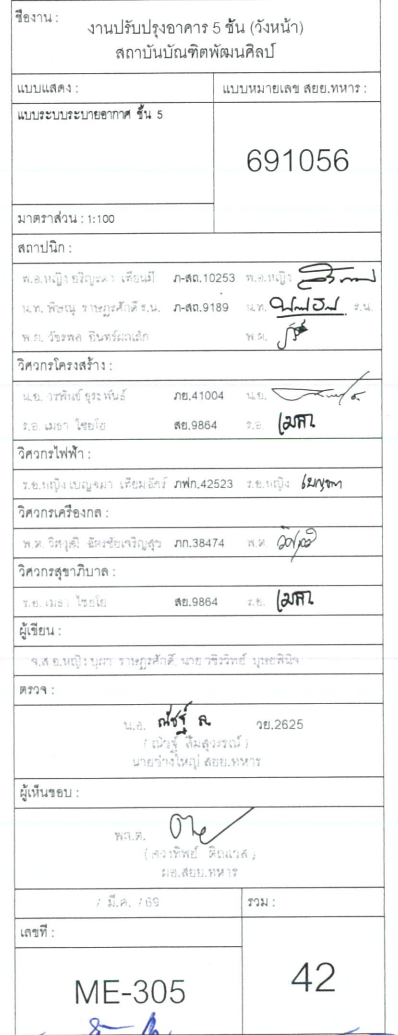 ชื่องาน :
งานปรับปรุงอาคาร 5 ชั้น (วังหน้า)
สถาบันบัณฑิตพัฒนศิลป์
แบบแสดง : แบบหมายเลข สยย.ทหาร :
แบบระบบระบายอากาศ ชั้น 5
691056
มาตราส่วน : 1:100
สถาปนิก :
พ.อ.หญิง เทียนมี ภ-สถ.10253 พ.อ.หญิง
น.ท. พิษณุ ราษฎรศักดิ์ ร.น. ภ-สถ.9189 น.ท. ร.น.
พ.ต. วัชรพล พ.ต.
วิศวกรโครงสร้าง :
น.อ. วรพันธ์ ธุระพันธ์ ภย.41004 น.อ.
ร.อ. เมธา ไชยโย สย.9864 ร.อ. เมธา
วิศวกรไฟฟ้า :
ร.อ.หญิง เบญจมา ภฟก.42523 ร.อ.หญิง เบญจมา
วิศวกรเครื่องกล :
พ.ต. วิศวุฒิ ฉัตรชัยเจริญสุข ภก.38474 พ.ต.
วิศวกรสุขาภิบาล :
ร.อ. เมธา ไชยโย สย.9864 ร.อ. เมธา
ผู้เขียน :
จ.ส.อ.หญิง บุผา ราษฎรศักดิ์, นาย วชิรวิทย์
ตรวจ :
น.อ. วย.2625
นายช่างใหญ่ สยย.ทหาร
ผู้เห็นชอบ :
พล.ต.
ผอ.สยย.ทหาร
/ มี.ค. / 69 รวม :
เลขที่ :
ME-305 42